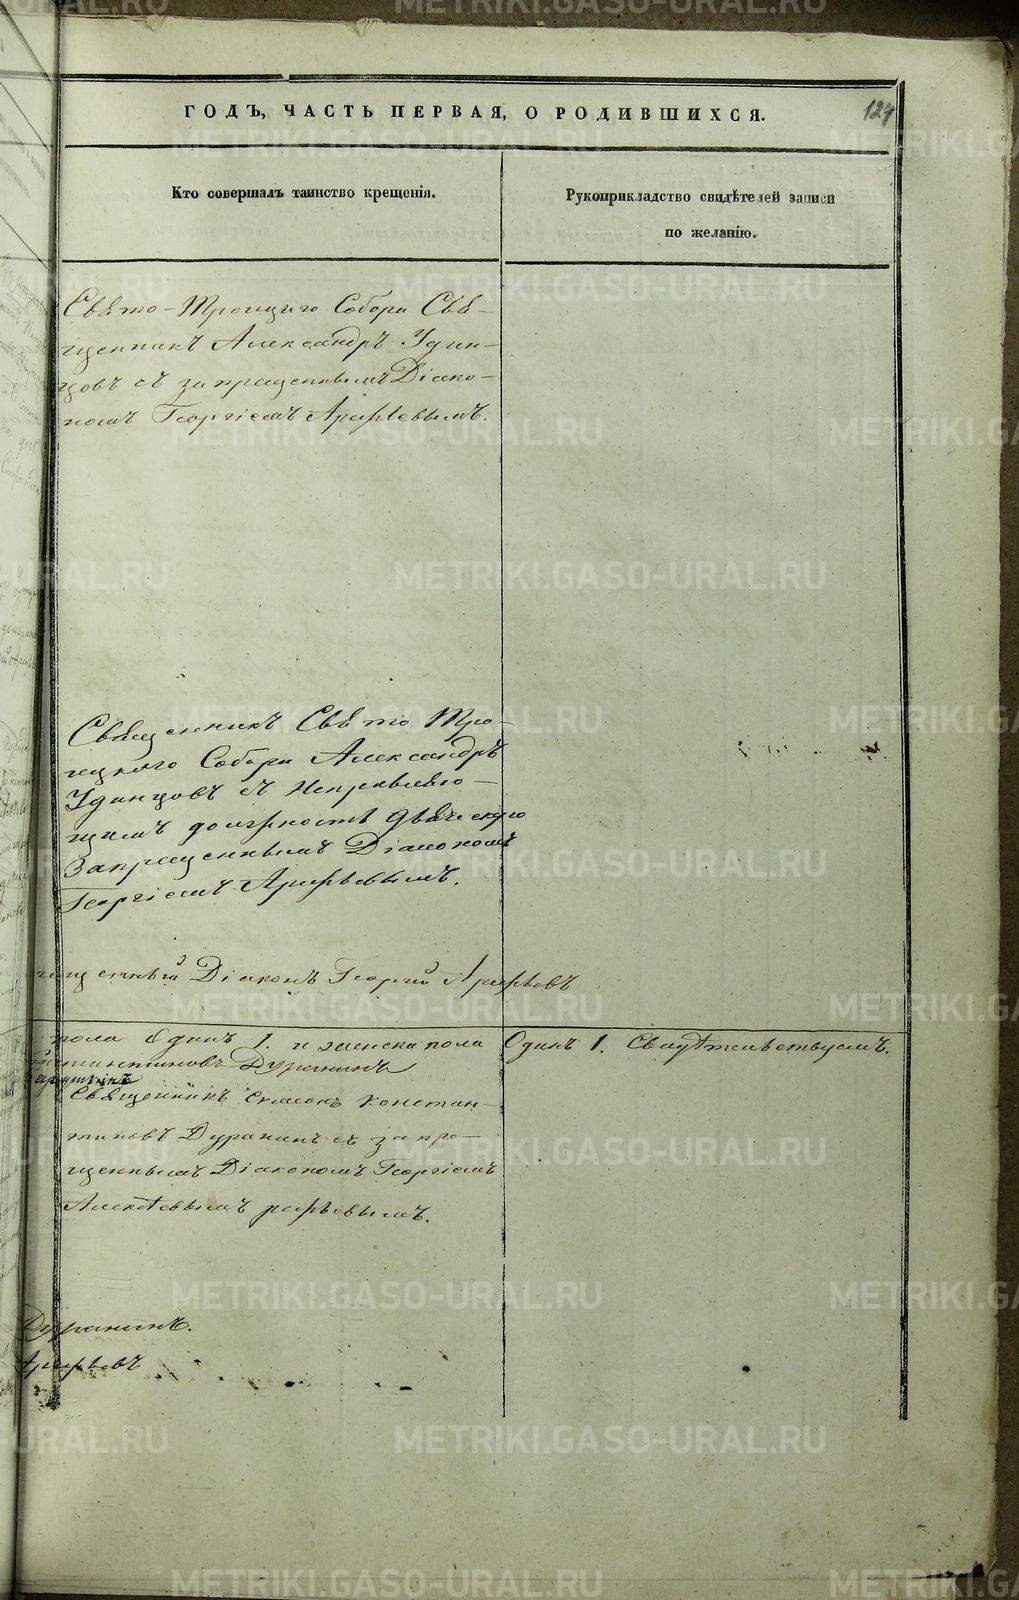 ГОДЪ, ЧАСТЬ ПЕРВАЯ, О РОДИВШИХСЯ.
124
Кто совершалъ таинство крещенія.
Рукоприкладство свидѣтелей записи
по желанію.
Свято-Троицкаго Собора Свя-
щенникъ Александръ Удин-
цовъ съ запрещеннымъ Діако-
номъ Георгіемъ Арефьевымъ.
Священникъ Свято Тро-
ицкаго Собора Александръ
Удинцовъ съ Исправляю-
щимъ должность дьяческую
Запрещеннымъ Діакономъ
Георгіемъ Арефьевымъ.
Діаконъ Георгій Арефьевъ
пола Одинъ 1. и женска пола Одинъ 1. Свидѣтельствуемъ.
Константиновъ Дуранинъ
Священникъ Симеонъ Констан-
тиновъ Дуранинъ съ запре-
щеннымъ Діакономъ Георгіемъ
Алексѣевымъ рефьевымъ.
Дуранинъ.
Арефьевъ
METRIKI.GASO-URAL.RU